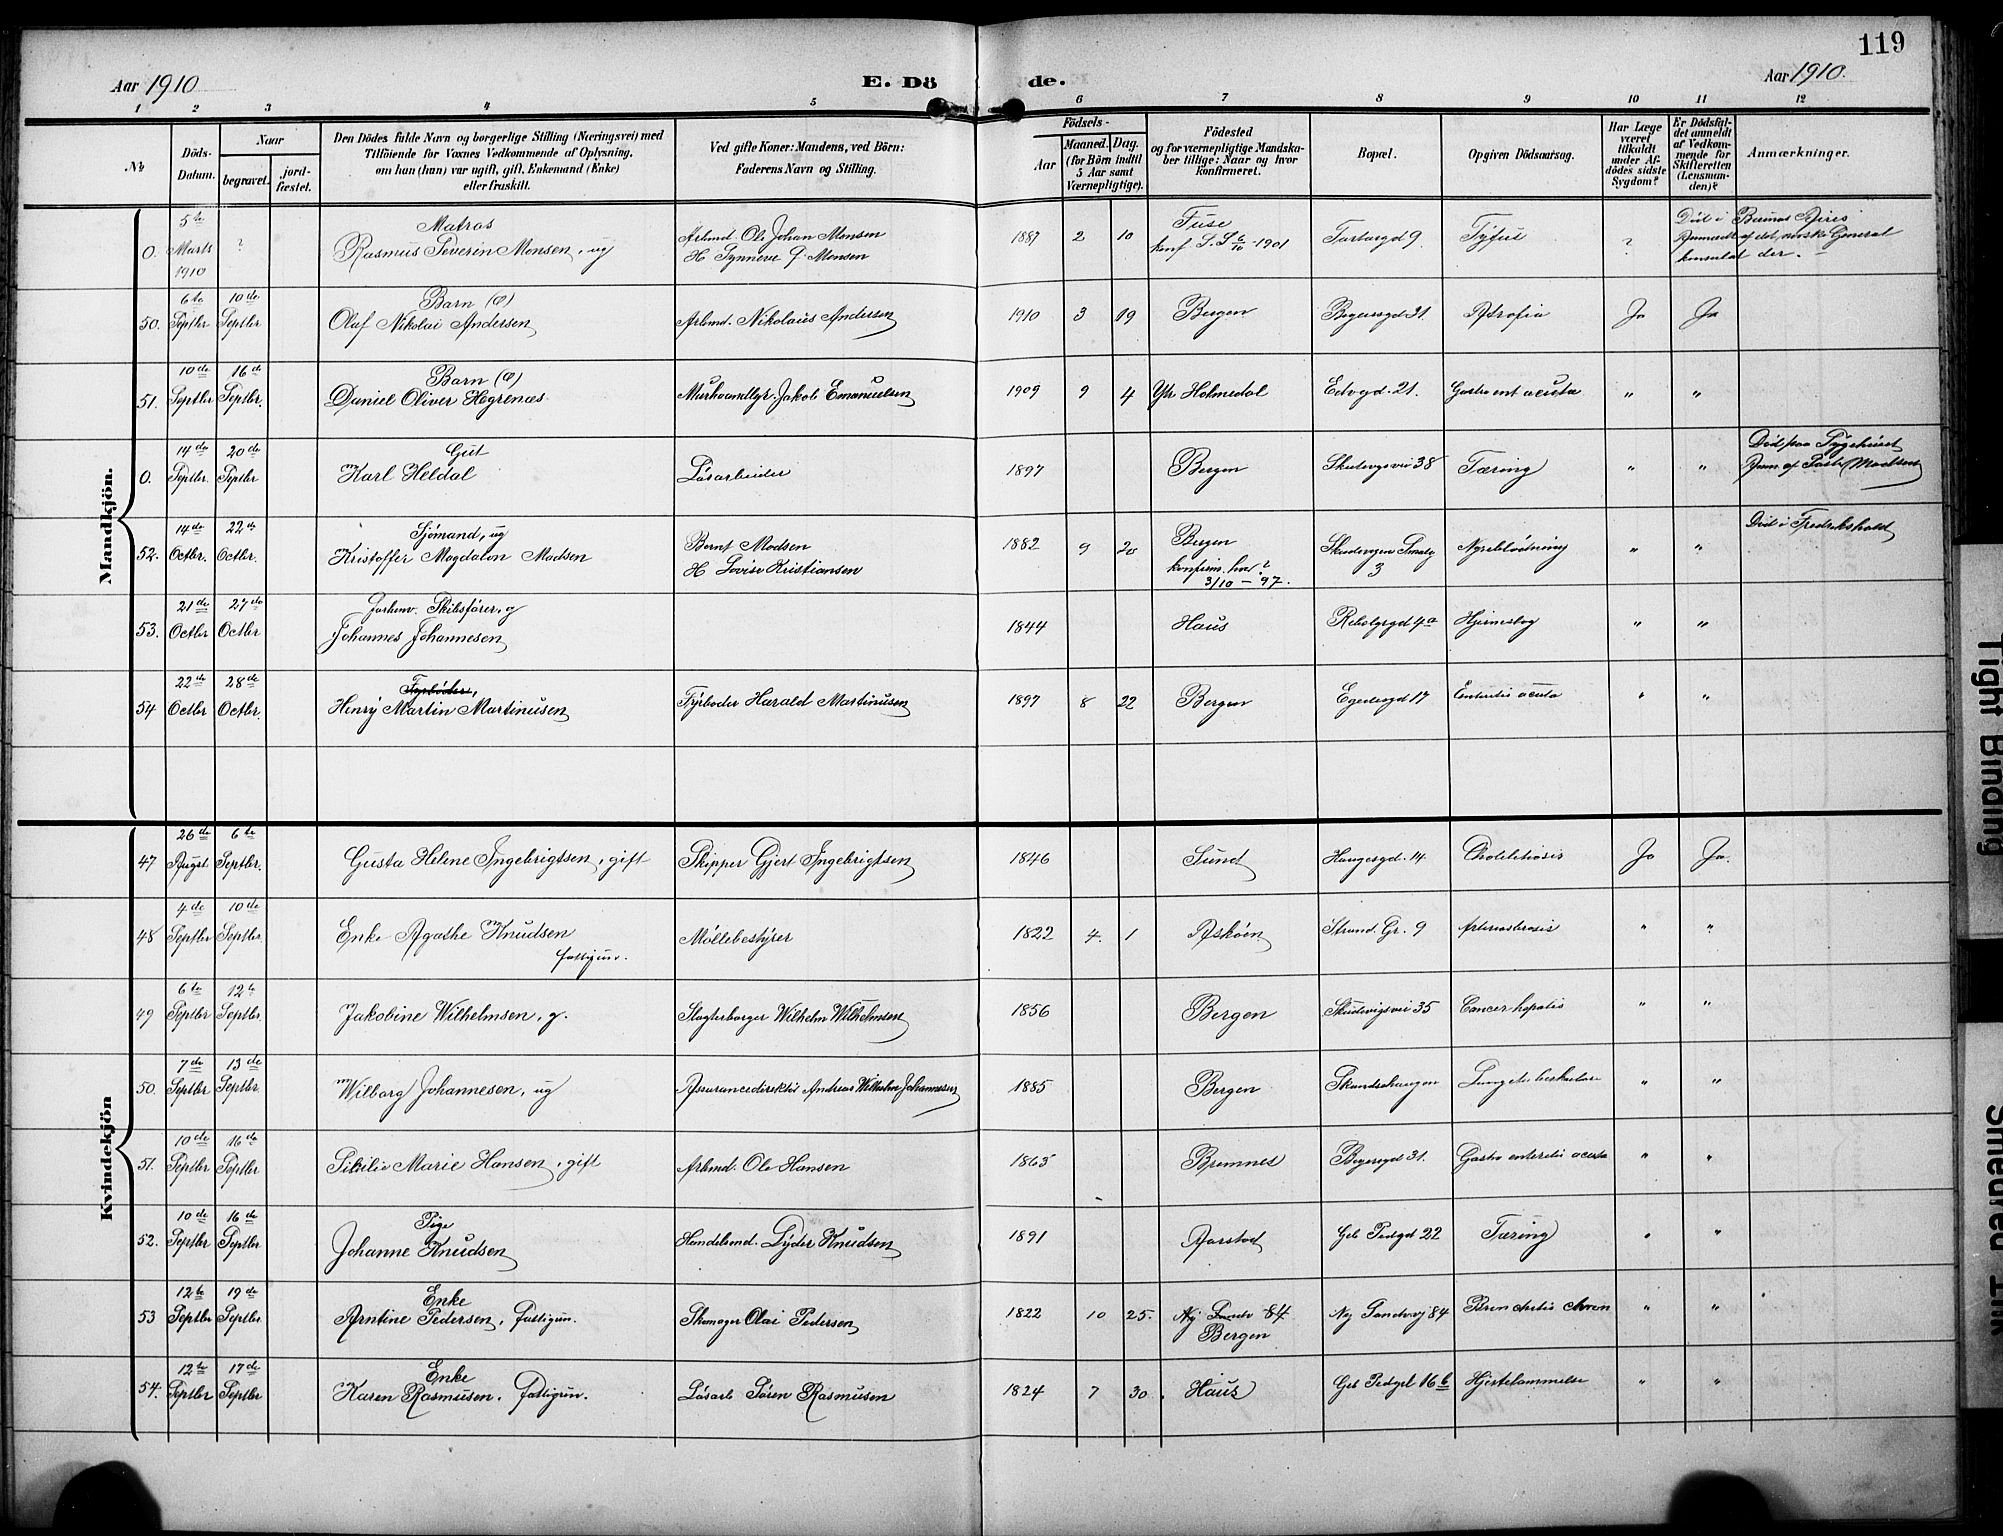 119
Aar 1910
E. Dö de.
Aar 1910.
1 2 3 4 5 6 7 8 9 10 11 12
No
Döds-Datum.
Naar
begravet.
jord-fæstet.
Den Dödes fulde Navn og borgerlige Stilling (Næringsvei) med
Tilföiende for Voxnes Vedkommende af Oplysning,
om han (hun) var ugift, gift, Enkemand (Enke)
eller fraskilt.
Ved gifte Koner: Mandens, ved Börn:
Faderens Navn og Stilling.
Födsels-
Aar
Maaned. Dag.
(for Börn indtil
5 Aar samt
Værnepligtige).
Födested
og for værnepligtige Mandska-
ber tillige: Naar og hvor
konfirmeret.
Bopæl.
Opgiven Dödsaarsag.
Har Læge
været
tilkaldt
under Af-
dödes sidste
Sygdom?
Er Dödsfal-
det anmeldt
af Vedkom-
mende for
Skifteretten
(Lensman-
den)?
Anmærkninger.
Mandkjön.
0. 5te Marts 1910 ? Matros Rasmus Severin Monsen, ug Arbmd. Ole Johan Monsen H. Synneve J. Monsen 1887 2 10 Fuse konf 1901 9 Tyfus ? Död i Buenos Aires Anmeldt af det norske General konsulat der.
50. 6te Septbr 10de Septbr Barn Olaf Nikolai Andersen Arbmd. Nikolaus Andersen 1910 3 19 Bergen 31. Atrofia Ja Ja
51. 10de Septbr 16de Septbr. Barn Daniel Oliver Hegrenæs Jakob Emanuelsen 1909 9 4 Ytr Holmedal 21. Gastro ent acuta " "
0. 14de Septbr. 20de Septbr Gut Karl Heldal Løsarbeider 1897 Bergen 38 Tæring " " Död paa Sygehuset
52. 14de Octbr. 22de Octbr. Sjömand, ug Kristoffer Magdalon Madsen Bernt Madsen H Lovise Kristiansen 1882 9 20 Bergen konfirm. hvor? 3/10 - 97. 3 Nyreblödning " " Död i Fredrikshald
53. 21de Octbr 27de Octbr Forhenv. Skibsfører, g Johannes Johannesen 1844 Haus 4a " "
54 22de Octbr 28de Octbr. Fyrböder, Henry Martin Martinusen Fyrböder Harald Martinusen 1897 8 22 Bergen Egedesgd 17 Enteritis acuta " "
Kvindekjön
47 26de August 6te Septbr. Gusta Helene Ingebrigtsen, gift Skipper Gjert Ingebrigtsen 1846 Sund Haugesgd. 14 Cholelithiasis Ja Ja.
48 4de Septbr 10de Septbr Enke Agathe Knudsen fattigun. Möllebestyrer 1822 4. 1 Asköen Strand. Gr. 9 " "
49 6te Septbr 12te Septbr. Jakobine Wilhelmsen, g. Slagterborger Wilhelm Wilhelmsen 1856 Bergen Skudevigsvei 35 Cancer hepatis " "
50. 7de Septbr 13de Septbr Wilborg Johannesen, ug Assurancedirektör Andreas Wilhelm Johannessen 1885 Bergen " "
51. 10de Septbr 16de Septbr Marie Hansen, gift Arbmd. Ole Hansen 1865 Bremnes 31. Gastro enteritis acuta " "
52. 10de Septbr 16de Septbr Pige Johanne Knudsen Handelsmd. Lyder Knudsen 1891 Aarstad 22 Tæring " "
53 12te Septbr 19de Septbr Enke Arntine Pedersen, Fattigun. Skomager Olai Pedersen 1822 10 25. Ny Sandv 84 Bergen Ny Sandvej 84 " "
54. 12te Septbr 17de Septbr Enke Karen Rasmusen. Fattigun. Løsarb Sören Rasmusen 1824 7 30. Haus 16b Hjertelammelse " "
Tight Binding
Smeared Ink